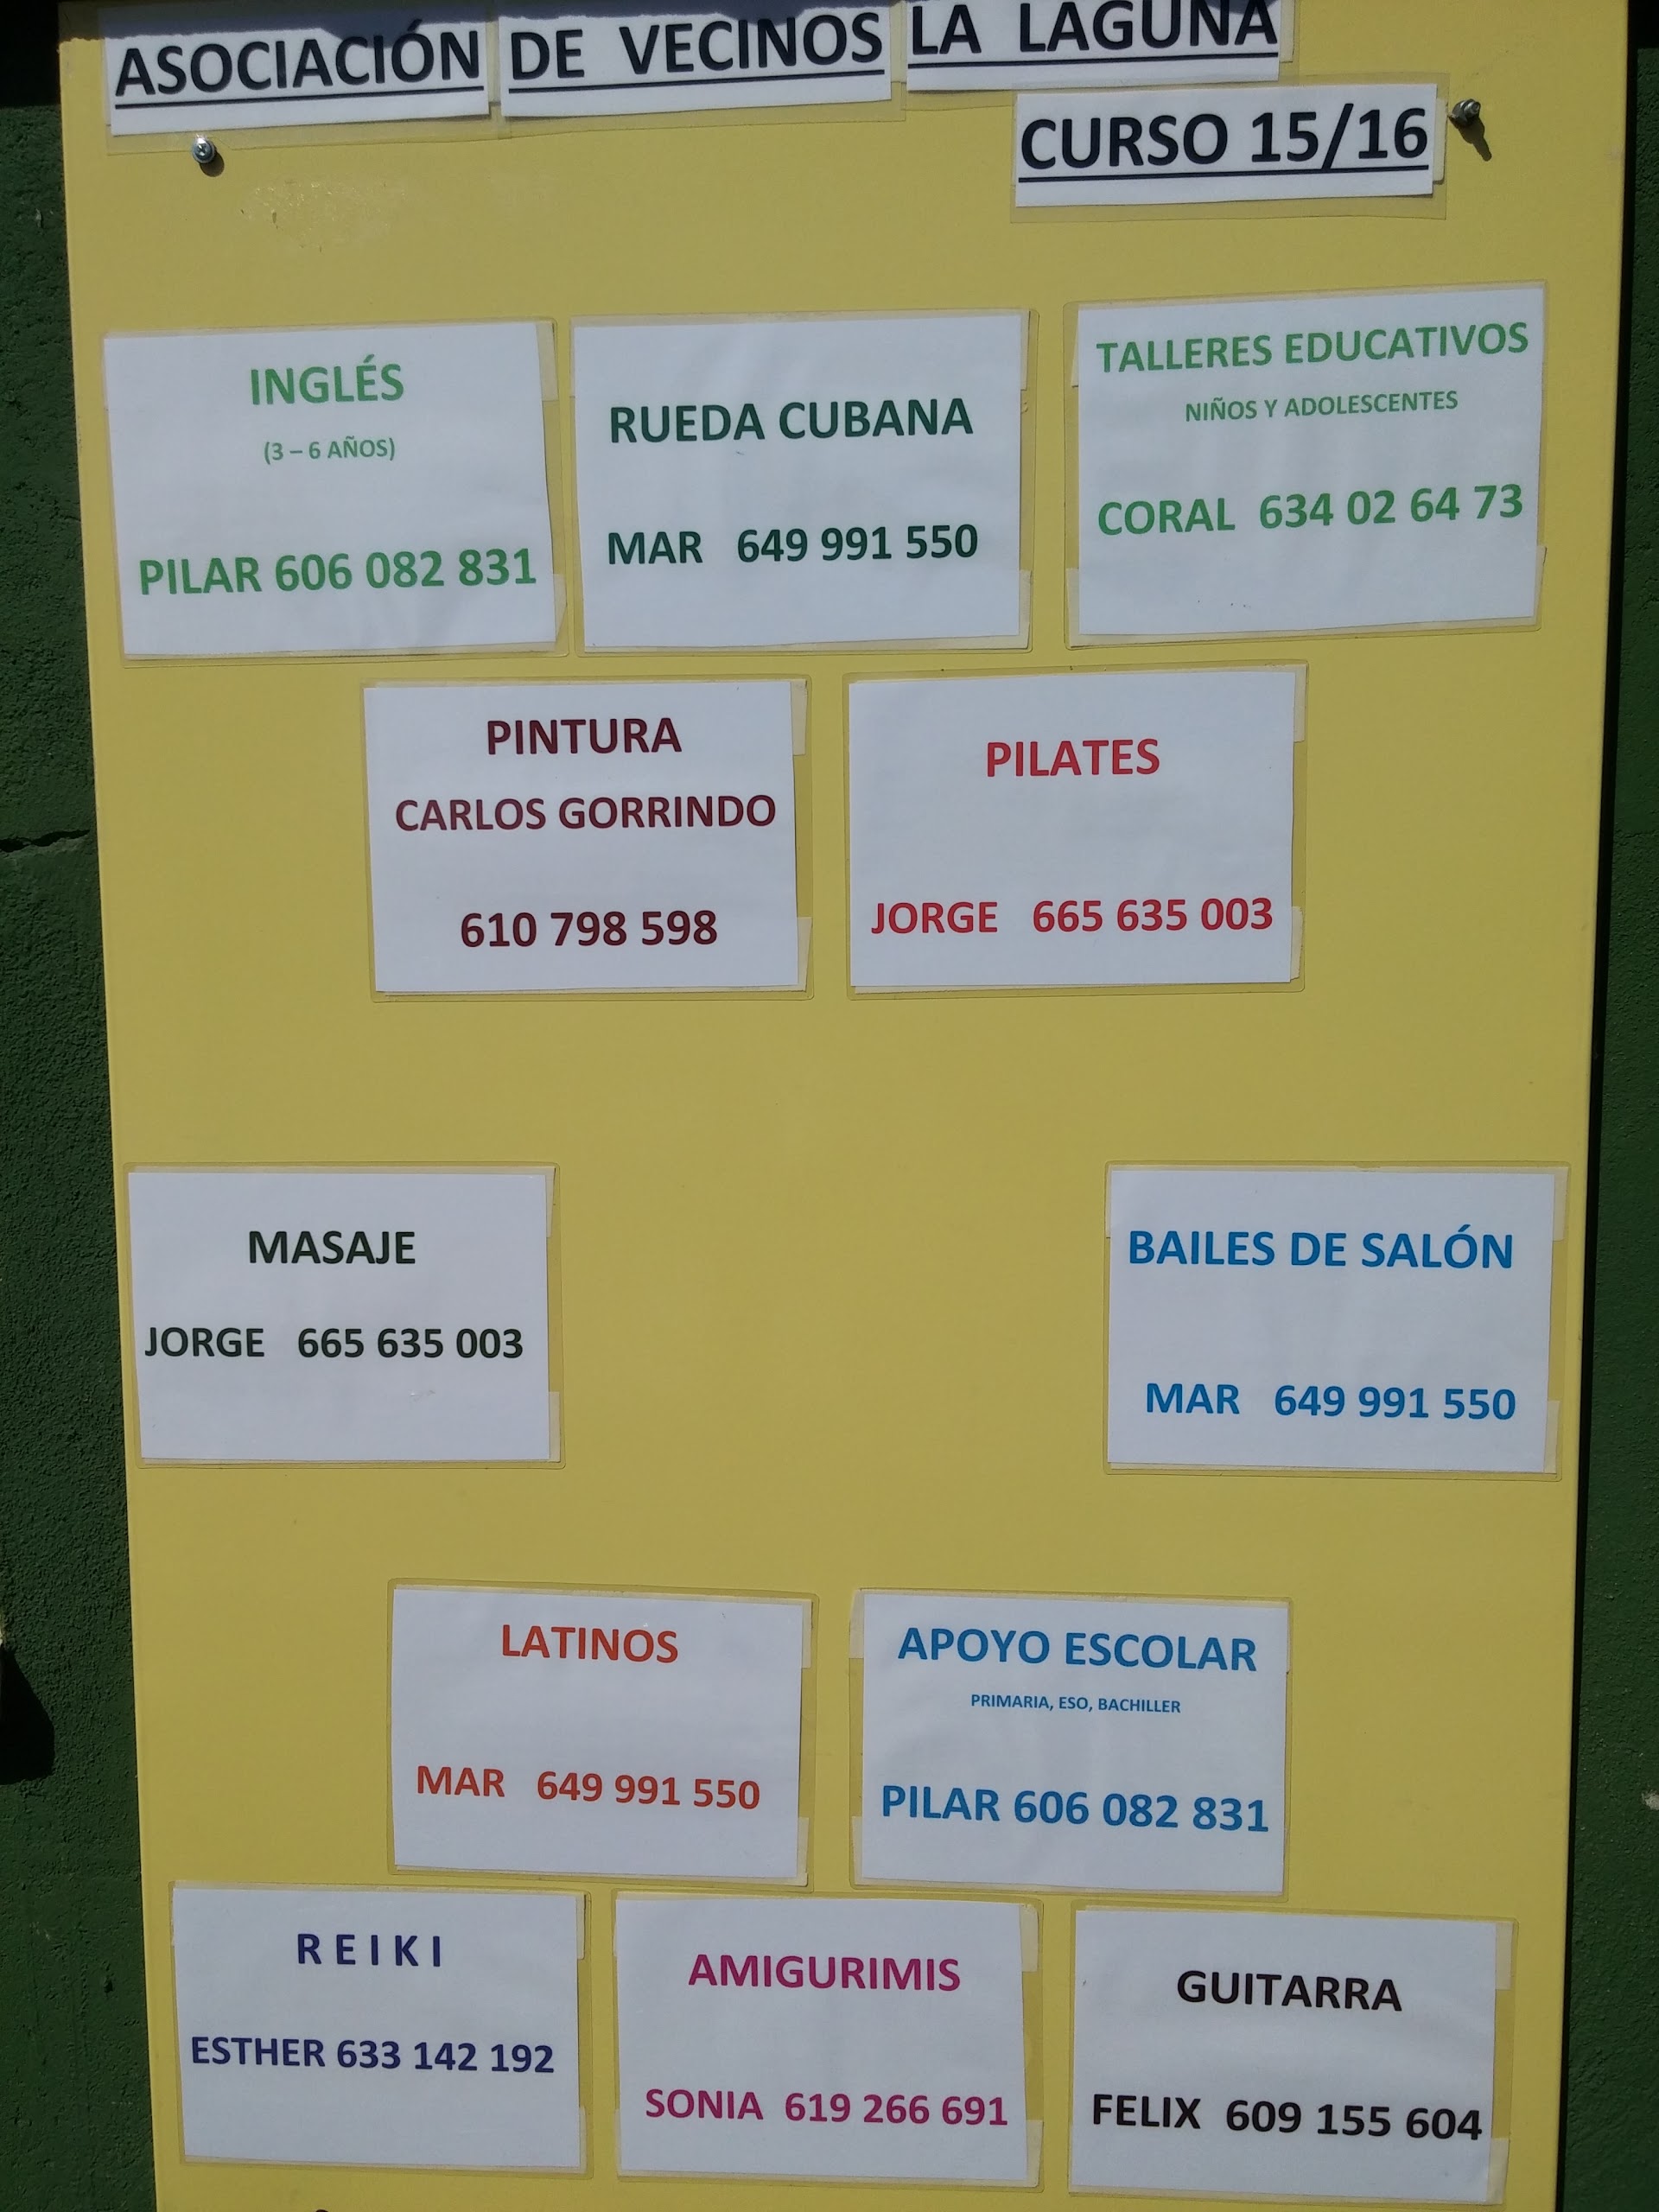 ASOCIACIÓN DE VECINOS LA LAGUNA
CURSO 15/16
INGLÉS
(3 – 6 AÑOS)
PILAR 606 082 831
RUEDA CUBANA
MAR 649 991 550
TALLERES EDUCATIVOS
NIÑOS Y ADOLESCENTES
CORAL 634 02 64 73
PINTURA
CARLOS GORRINDO
610 798 598
PILATES
JORGE 665 635 003
MASAJE
JORGE 665 635 003
BAILES DE SALÓN
MAR 649 991 550
LATINOS
MAR 649 991 550
APOYO ESCOLAR
PRIMARIA, ESO, BACHILLER
PILAR 606 082 831
R E I K I
ESTHER 633 142 192
AMIGURIMIS
SONIA 619 266 691
GUITARRA
FELIX 609 155 604